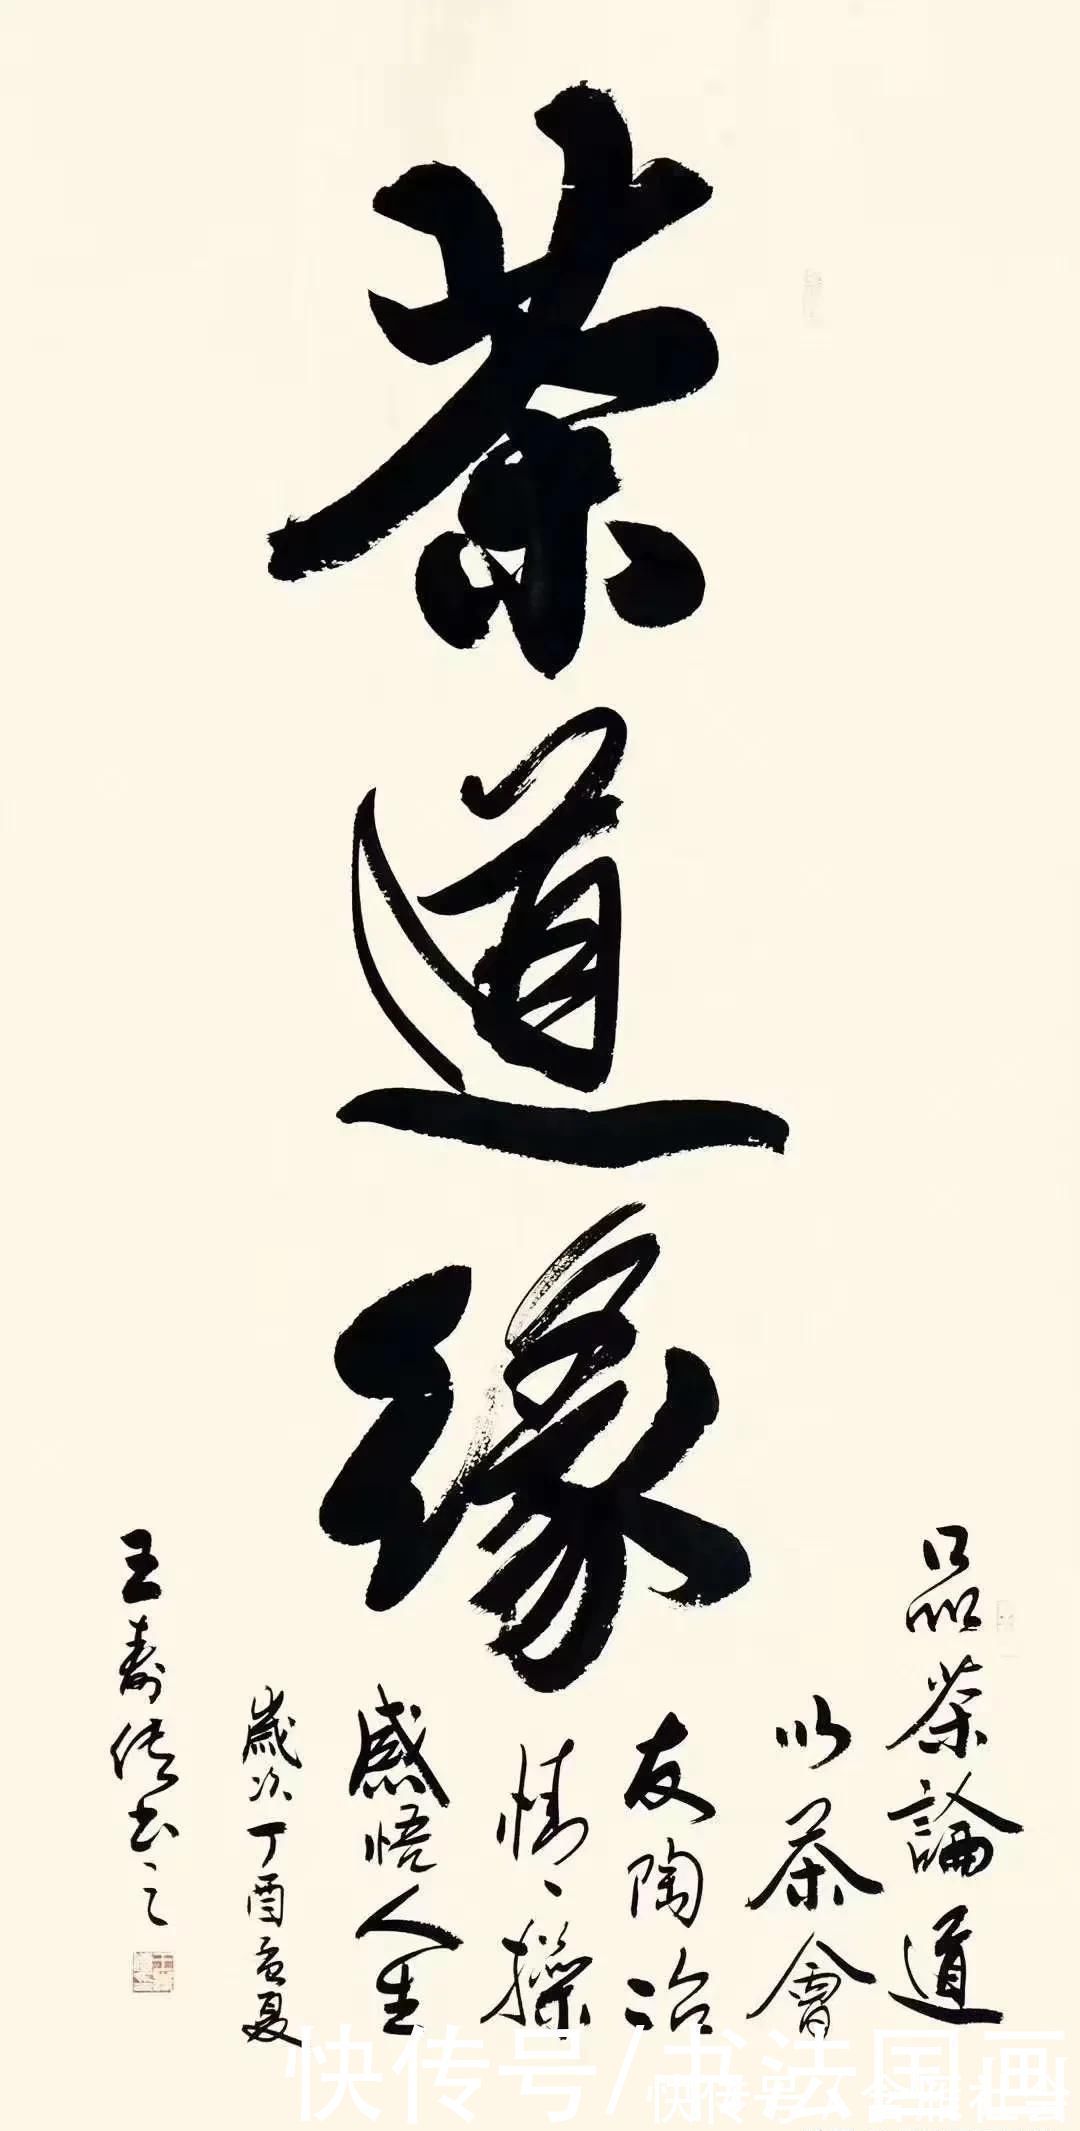 茶道缘
品茶論道
以茶會
友陶冶
情、操
感悟人生
歲次丁酉夏
王寿书之
快传号/书法国画
快传号